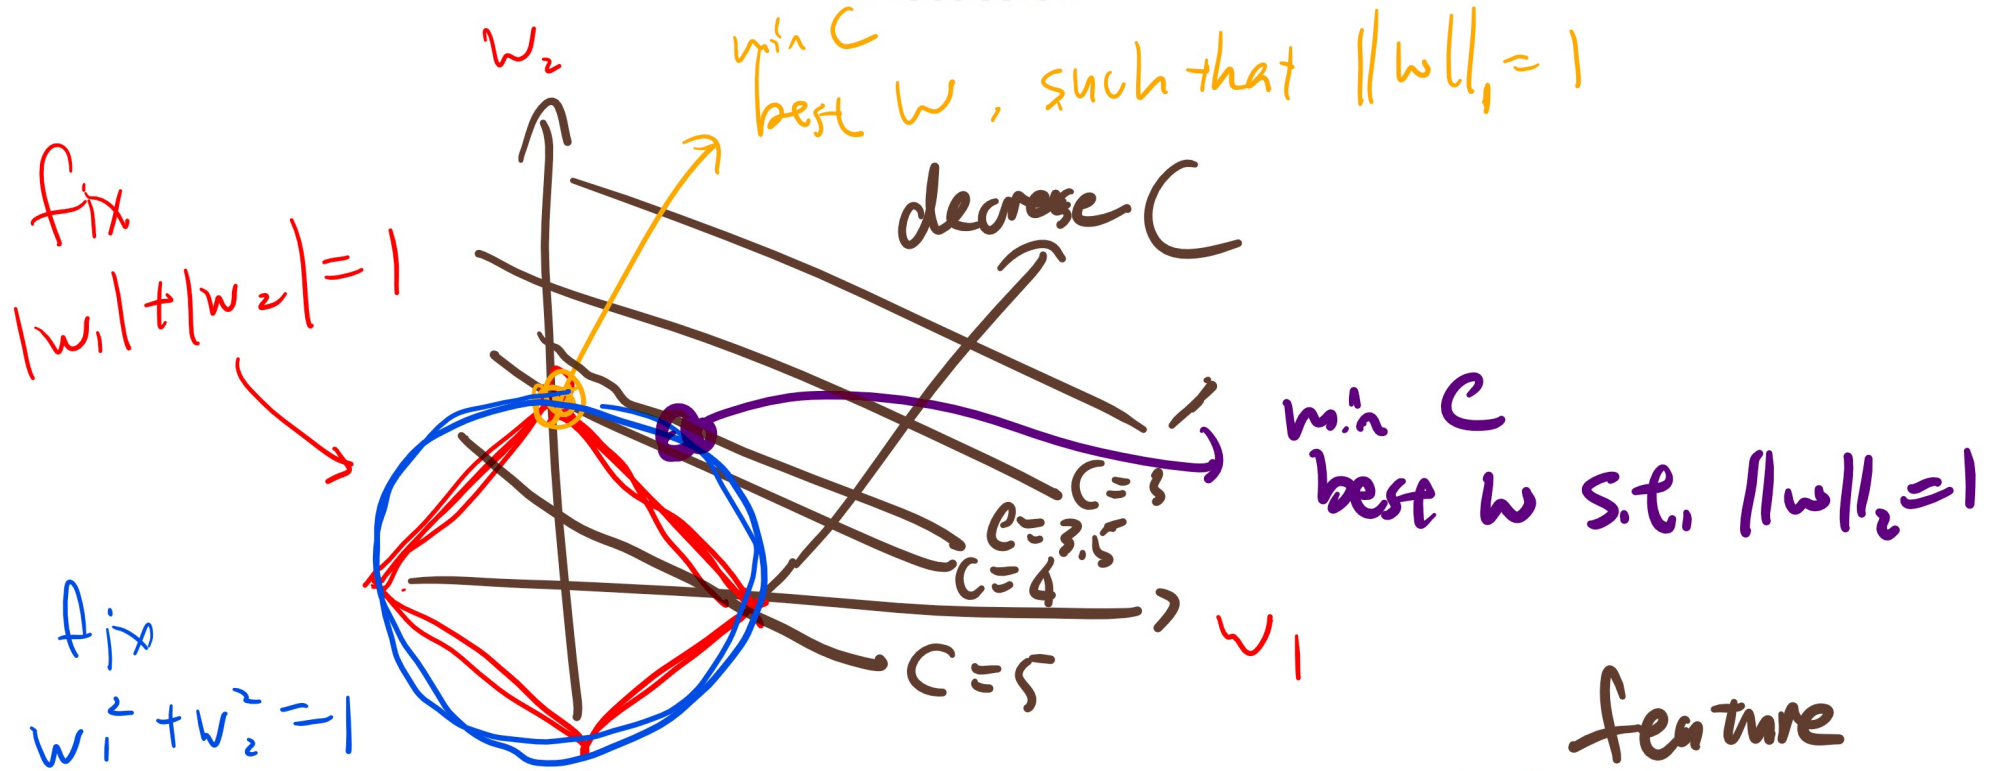 min C
best w, such that ||w||₁ = 1
w₂
decrease C
fix
|w₁| + |w₂| = 1
min C
best w s.t. ||w||₂ = 1
C = 3
C = 3.5
C = 4
C = 5
w₁
fix
w₁² + w₂² = 1
feature